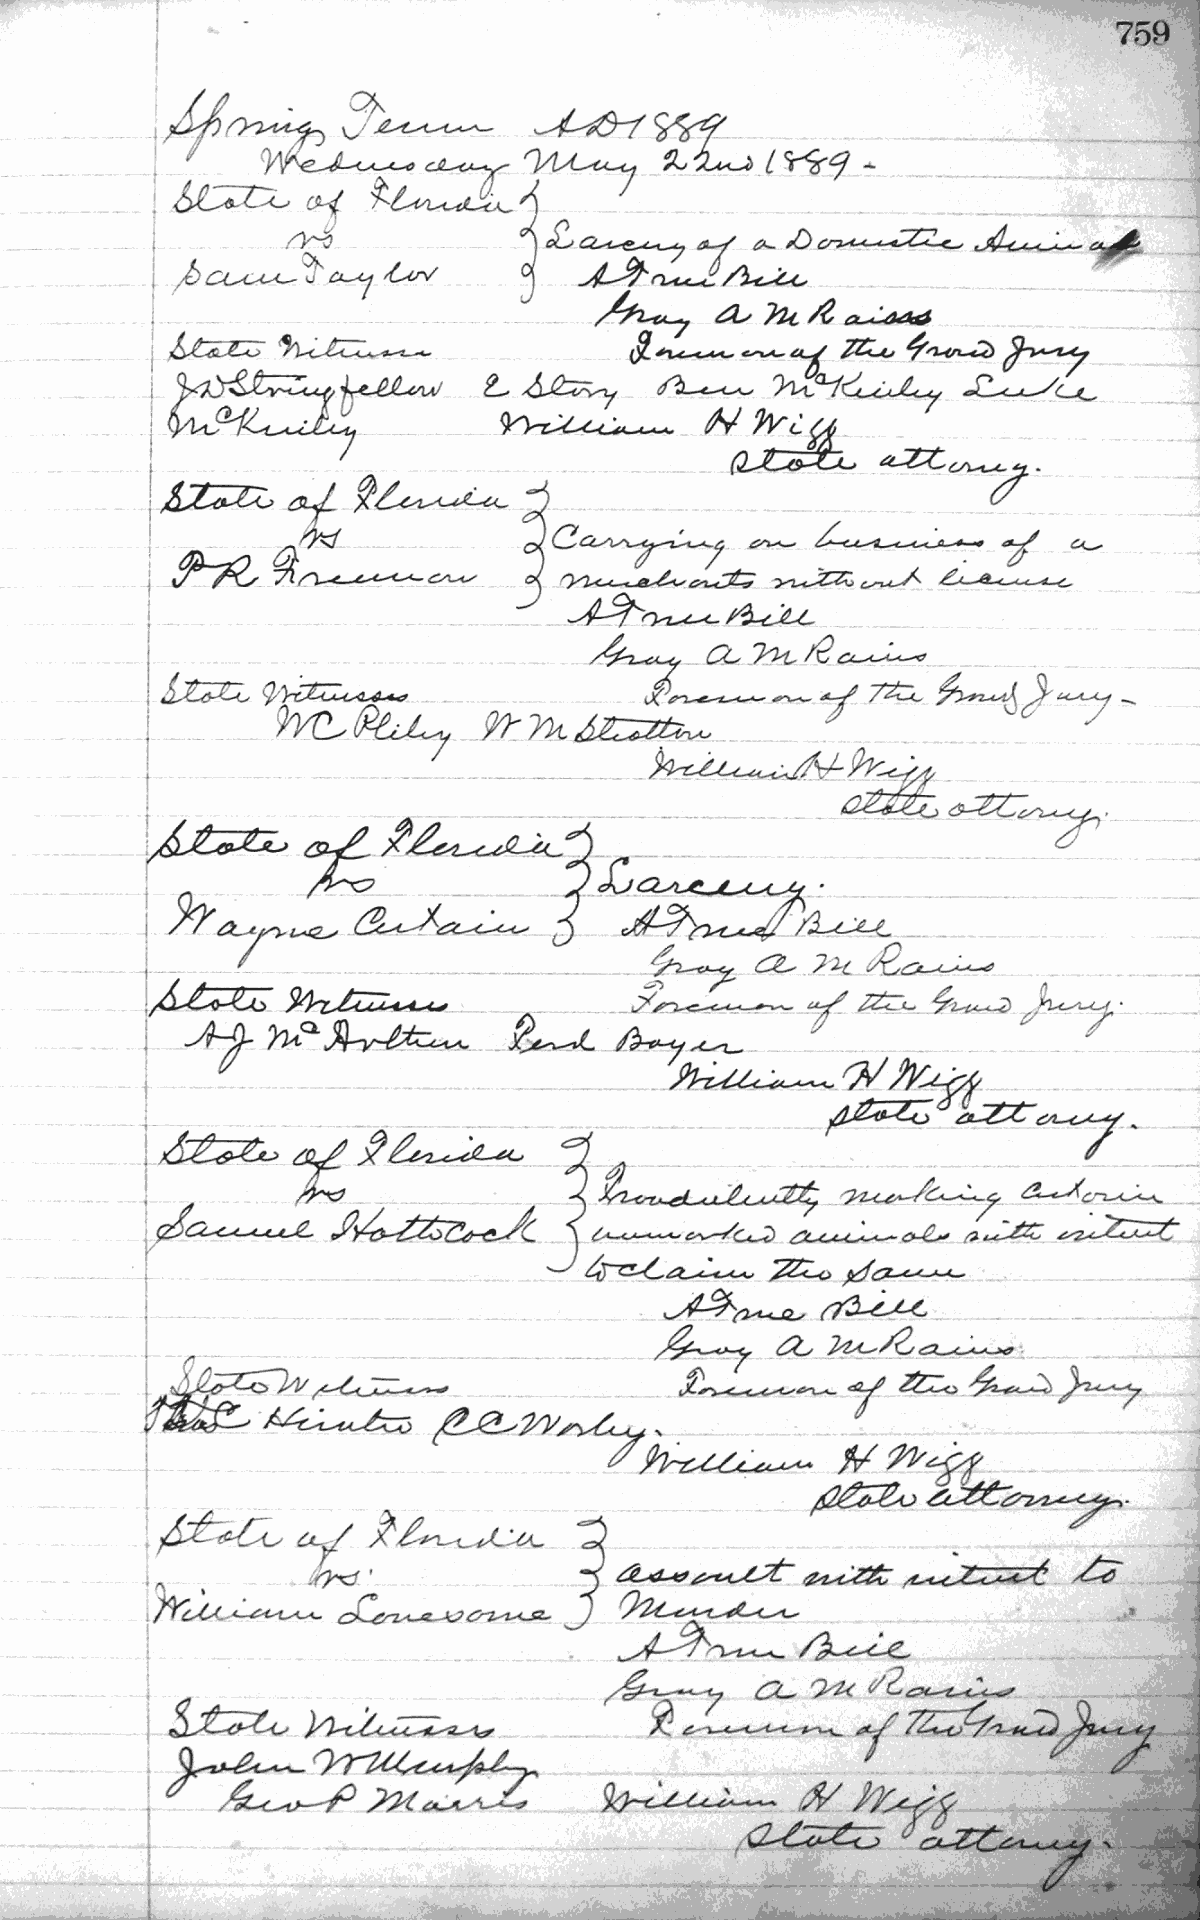 759
Spring Term AD 1889
Wednesday May 22nd 1889 -
State of Florida
vs
Larceny of a Domestic Animal
Sam Taylor
A True Bill
Gray A M Rains
State Witness
Foreman of the Grand Jury
J D Stringfellow E Story Ben McKinley Luke
McKinley
William H Wigg
State attorney.
State of Florida
vs
Carrying on business of a
P R Freeman
merchants without license
A True Bill
Gray A M Rains
State Witnesses
Foreman of the Grand Jury -
W C Pliley W M Stratton
William H Wigg
State attorney.
State of Florida
vs
Larceny.
Wayne Certain
A True Bill
Gray A M Rains
State Witnesses
Foreman of the Grand Jury.
A J Mc Boyer
William H Wigg
State attorney.
State of Florida
vs
Fraudulently marking certain
Samuel Hathcock
unmarked animals with intent
to claim the same
A True Bill
Gray A M Rains
State Witness
Foreman of the Grand Jury
C C Worley.
William H Wigg
State attorney.
State of Florida
vs.
assault with intent to
William Lonesome
Murder
A True Bill
Gray A M Rains
State Witnesses
Foreman of the Grand Jury
John W Murphy
Geo P Morris
William H Wigg
State attorney.